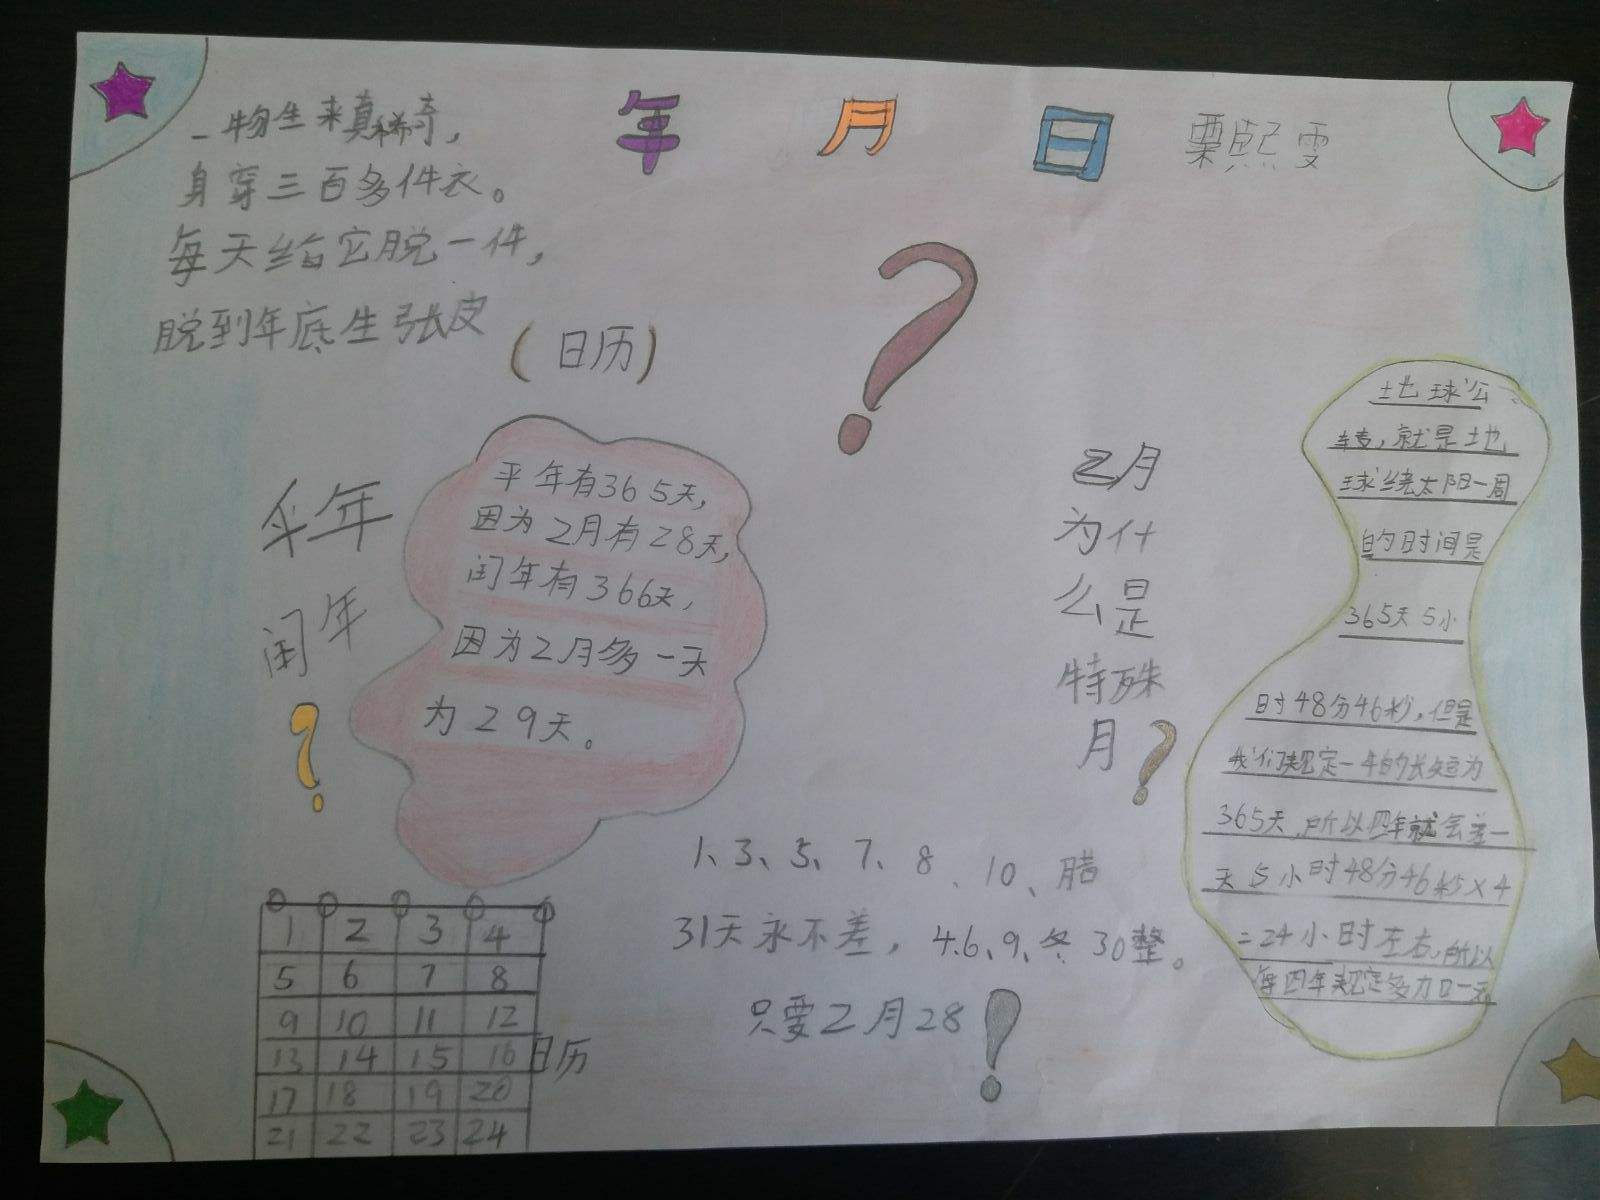 年 月 日 栗熙雯
一物生来真稀奇，
身穿三百多件衣。
每天给它脱一件，
脱到年底生张皮
(日历)
平年
闰年
?
平年有365天，
因为2月有28天，
闰年有366天，
因为2月多一天
为29天。
?
2月
为什
么是
特殊
月?
地球公
转，就是地
球绕太阳一周
的时间是
365天5小
时48分46秒，但是
我们规定一年的长短为
365天，所以四年就会差一
天5小时48分46秒×4
=24小时左右，所以
每四年规定多加一天
1、3、5、7、8、10、腊
31天永不差，4.6、9、冬30整。
只要2月28!
1 2 3 4
5 6 7 8
9 10 11 12
13 14 15 16
17 18 19 20
21 22 23 24
日历